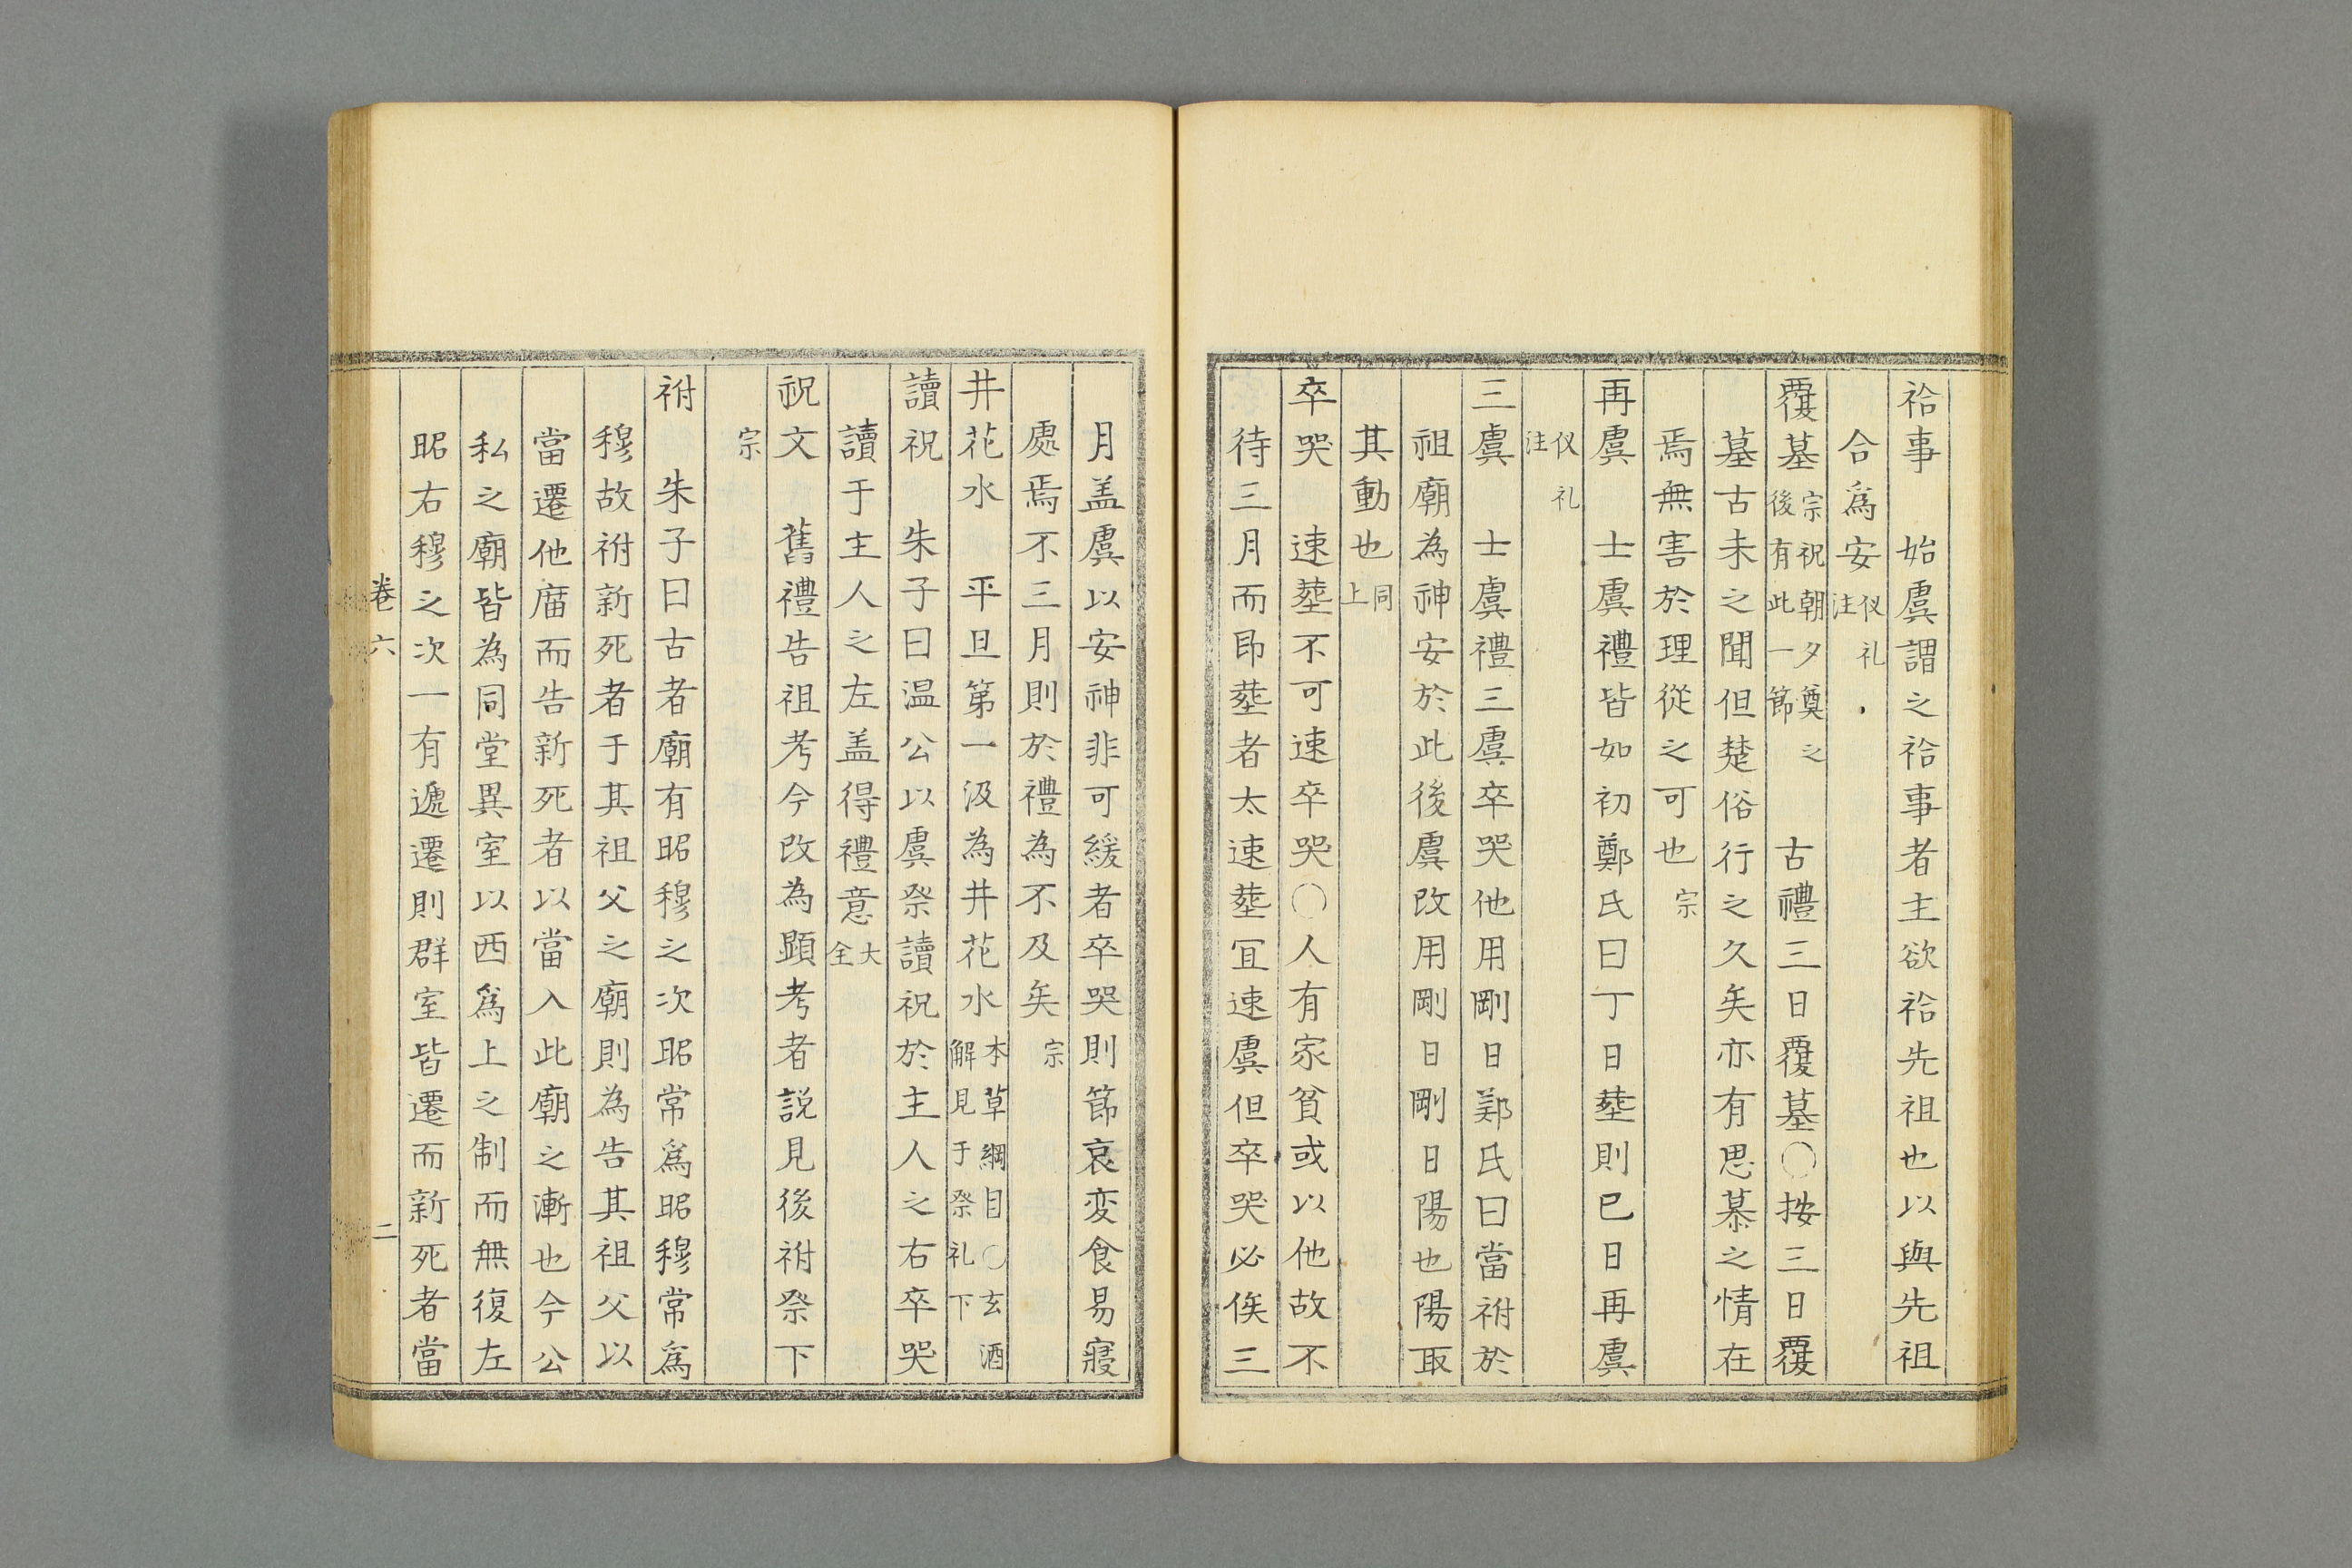 祫事　始虞謂之祫事者主欲祫先祖也以與先祖
合爲安仪礼注
覆墓宗祝朝夕奠之後有此一節　古禮三日覆墓○按三日覆
墓古未之聞但楚俗行之久矣亦有思慕之情在
焉無害於理從之可也宗
再虞　士虞禮皆如初鄭氏曰丁日塟則巳日再虞
仪礼注
三虞　士虞禮三虞卒哭他用剛日鄭氏曰當祔於
祖廟為神安於此後虞改用剛日剛日陽也陽取
其動也同上
卒哭　速塟不可速卒哭○人有家貧或以他故不
待三月而即塟者太速塟冝速虞但卒哭必俟三
月盖虞以安神非可緩者卒哭則節哀変食易寢
處焉不三月則於禮為不及矣宗
井花水　平旦第一汲為井花水本草綱目○玄酒解見于祭礼下
讀祝　朱子曰温公以虞祭讀祝於主人之右卒哭
讀于主人之左盖得禮意大全
祝文　舊禮告祖考今改為顕考者説見後祔祭下
宗
祔　朱子曰古者廟有昭穆之次昭常爲昭穆常爲
穆故祔新死者于其祖父之廟則為告其祖父以
當遷他庿而告新死者以當入此廟之漸也今公
私之廟皆為同堂異室以西爲上之制而無復左
昭右穆之次一有遞遷則群室皆遷而新死者當
卷六
二